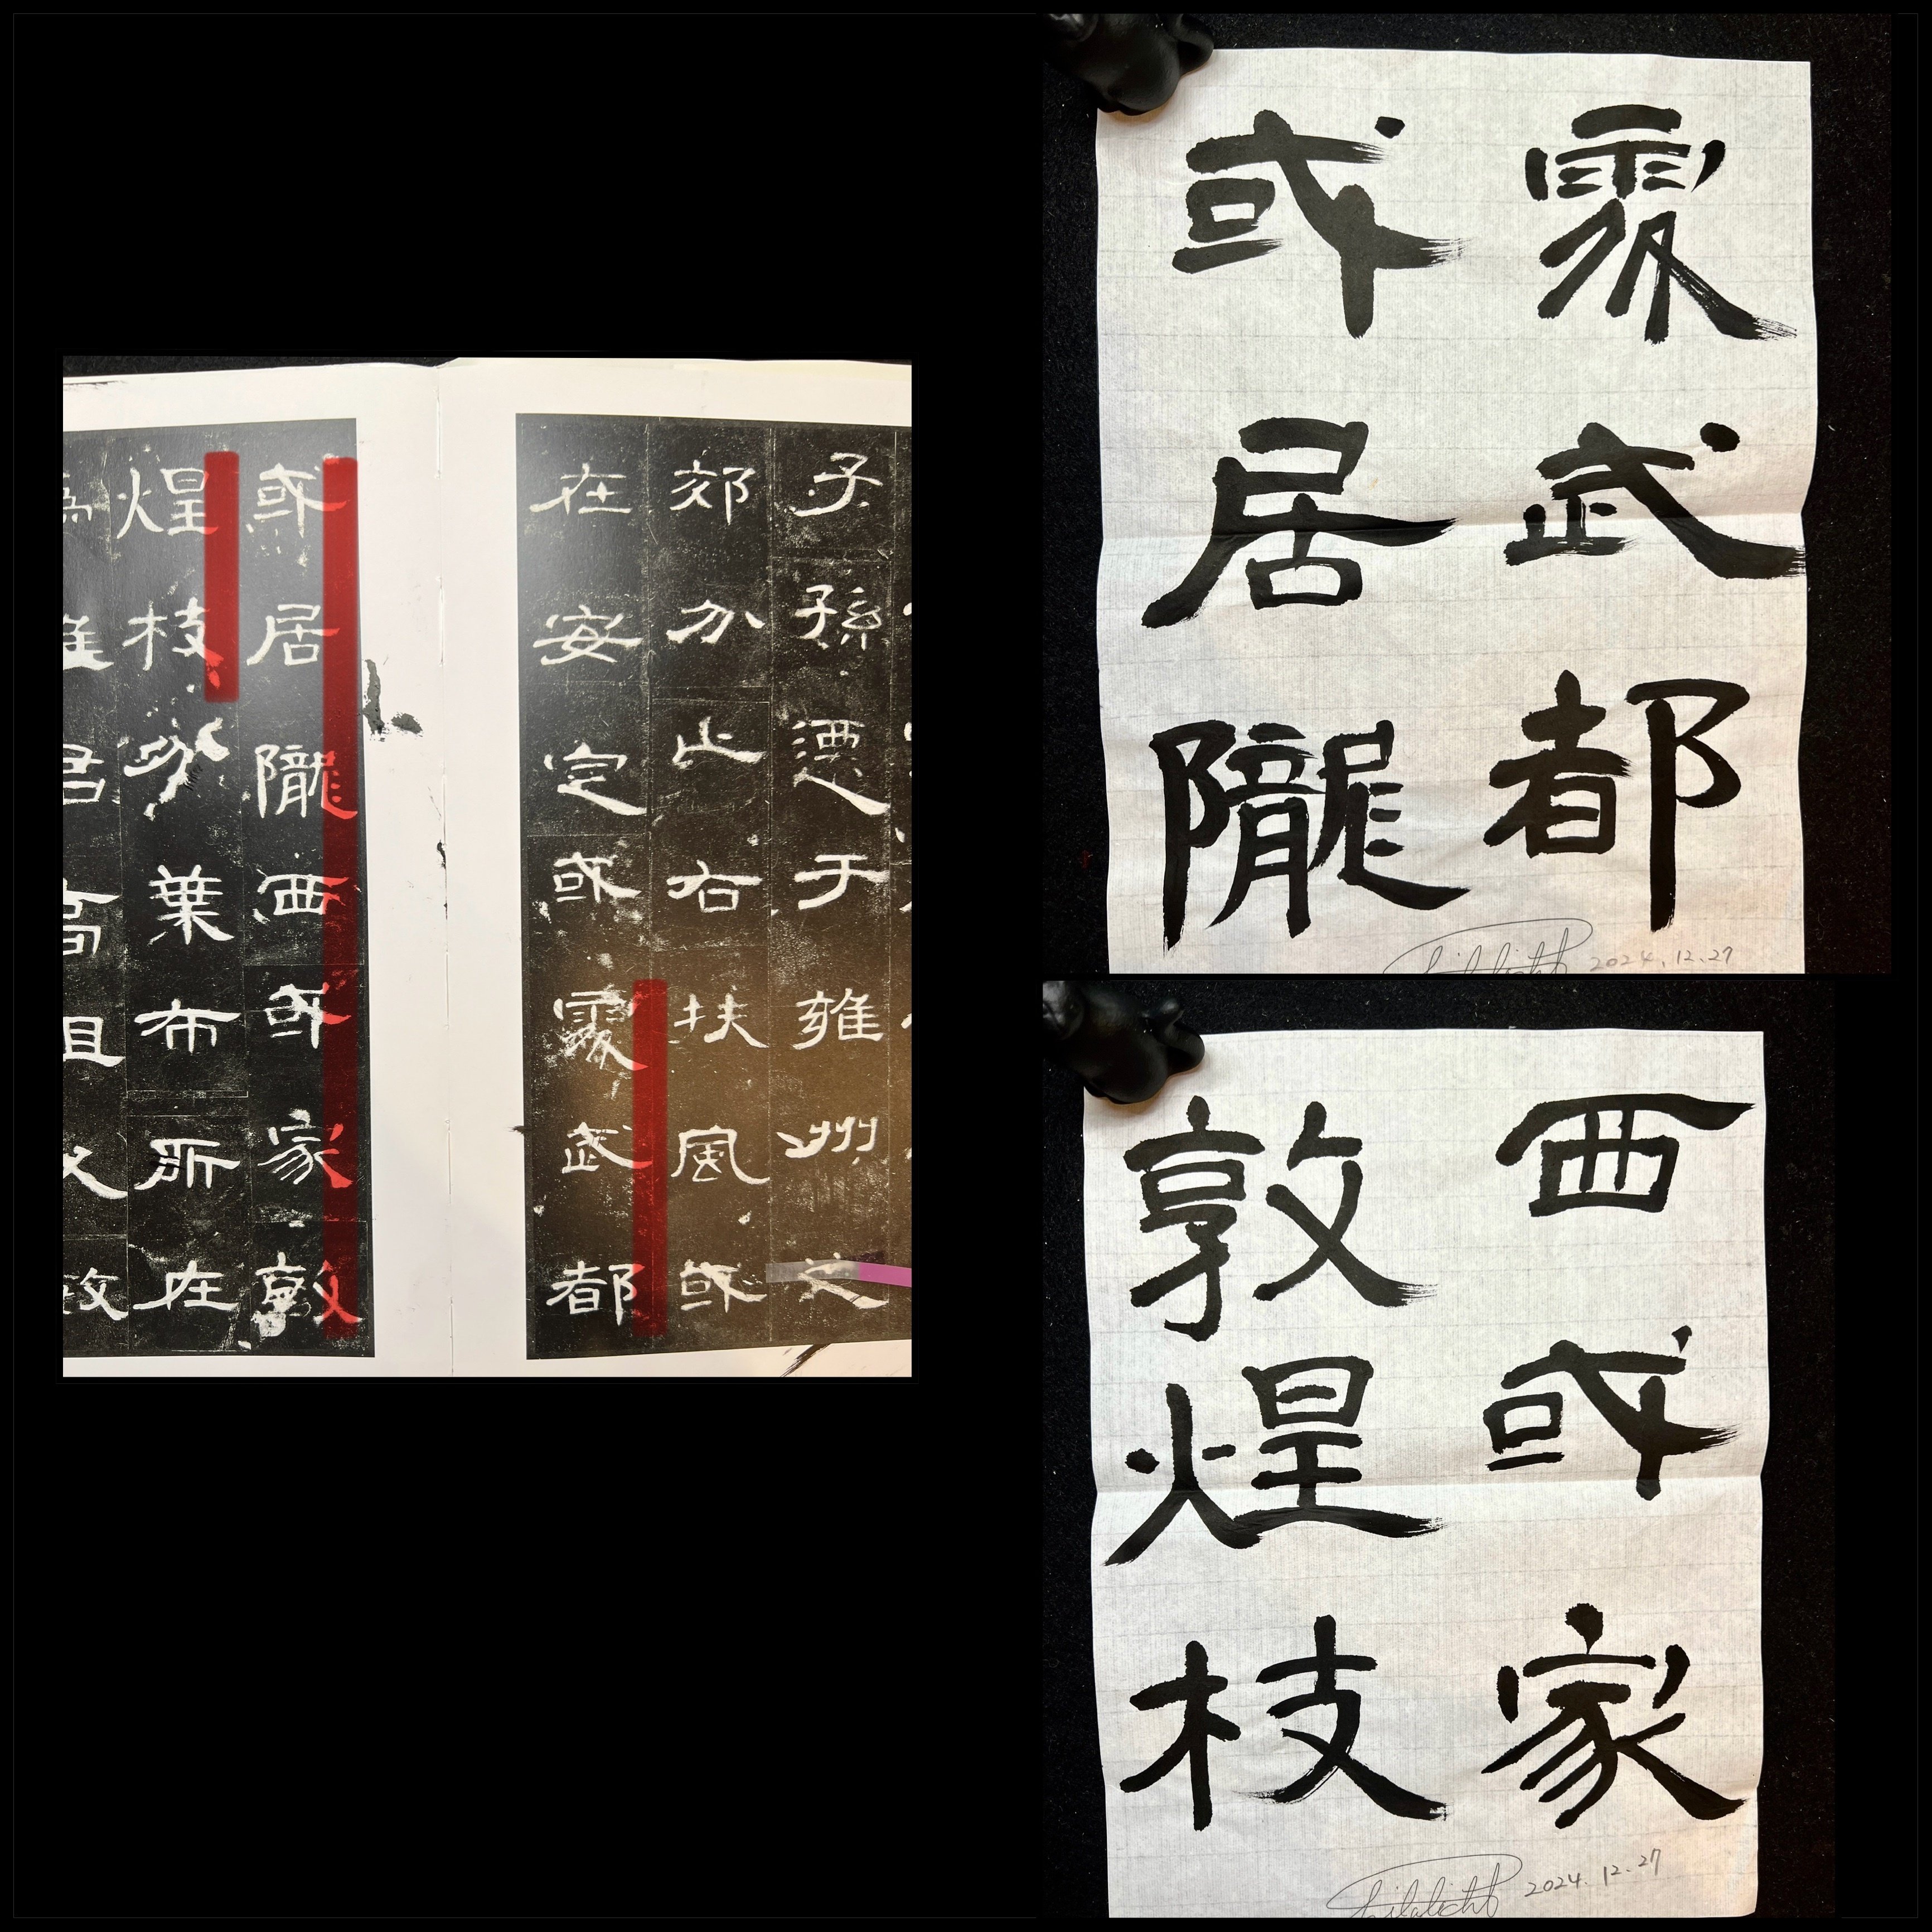 子孫遷于雍州之
郊分止右扶風或
在安定或處武都
或居隴西或家敦
煌枝分葉布所在
處武都
或居隴
2024.12.27
西或家
敦煌枝
2024.12.27